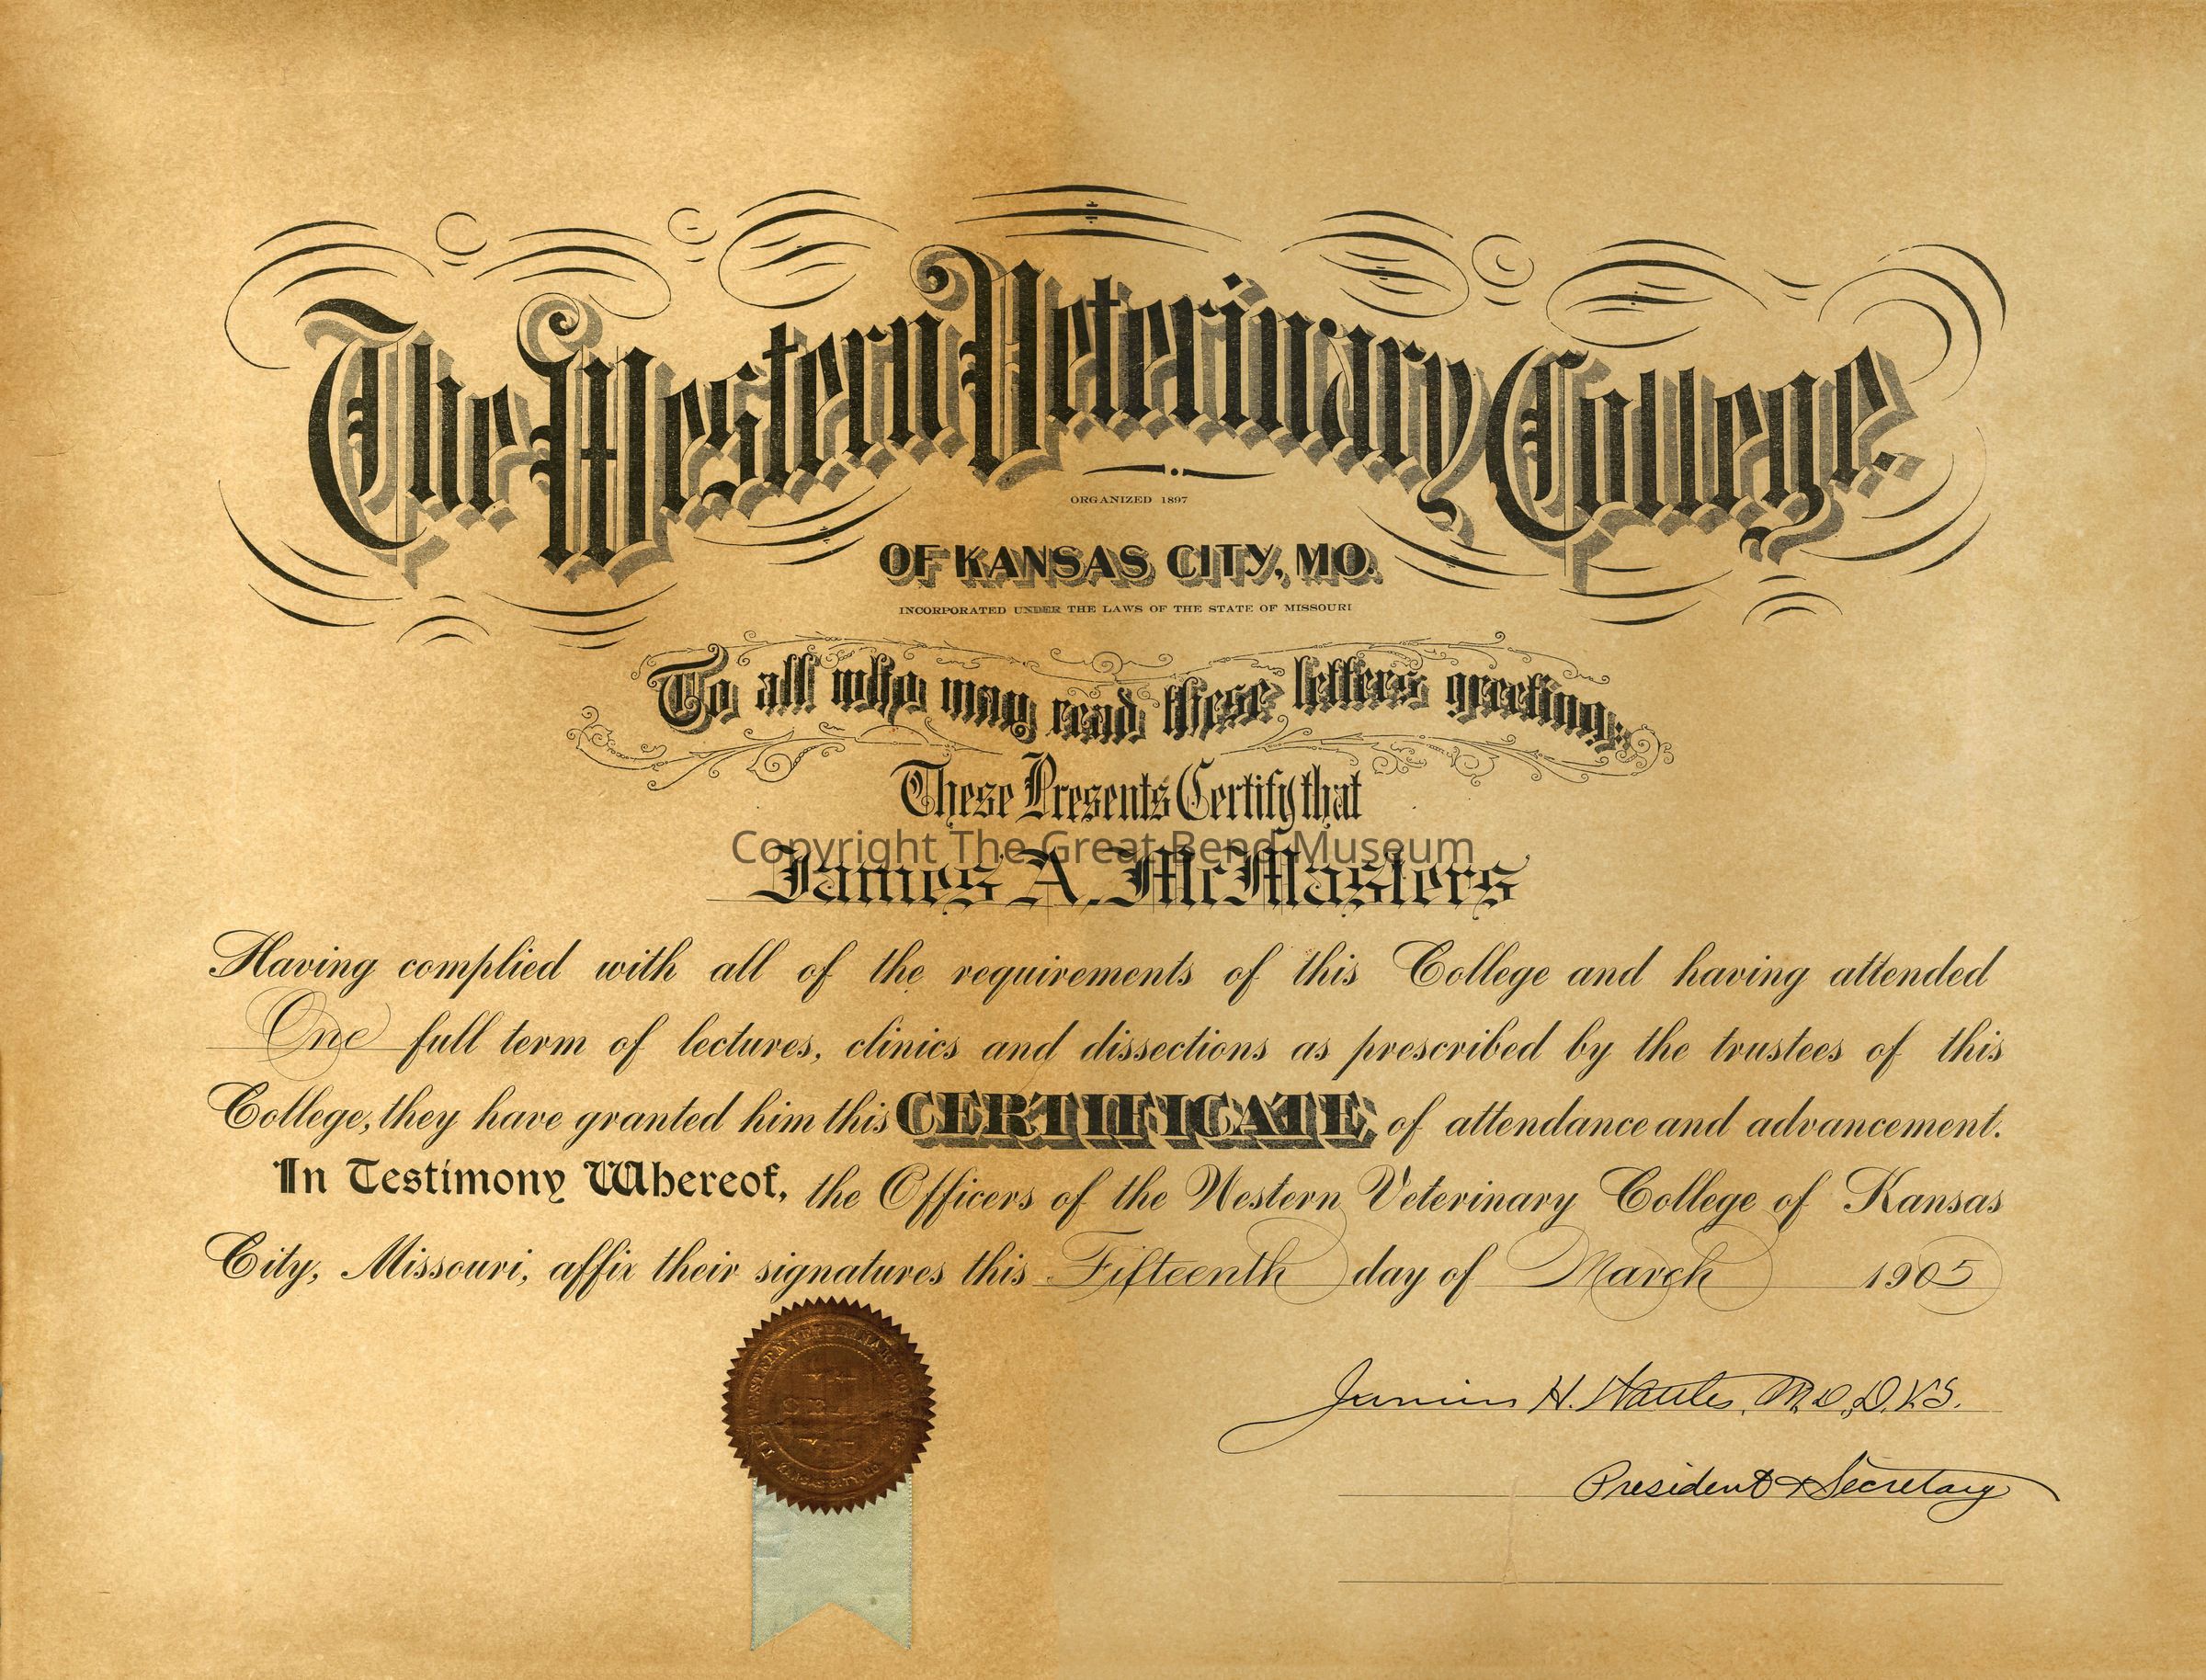 The Western Veterinary College.
ORGANIZED 1897
OF KANSAS CITY, MO.
INCORPORATED UNDER THE LAWS OF THE STATE OF MISSOURI
To all who may read these letters greeting;
These Presents Certify that
Copyright The Great Bend Museum
James A. McMasters
Having complied with all of the requirements of this College and having attended
One full term of lectures, clinics and dissections as prescribed by the trustees of this
College, they have granted him this CERTIFICATE of attendance and advancement.
In Testimony Whereof, the Officers of the Western Veterinary College of Kansas
City, Missouri, affix their signatures this Fifteenth day of March 1905
THE WESTERN VETERINARY COLLEGE
SEAL
KANSAS CITY, MO.
Junius H. Wattles, M.D., D.V.S.
President & Secretary